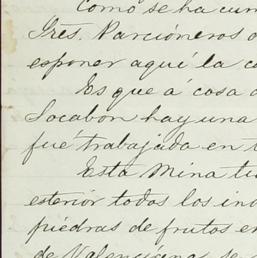 Como se ha cum
Sres. Parcioneros o
esponer aquí la co
Es que á cosa d
Socabon hay una
fué trabajada en t
Esta Mina tu
esterior todos los ind
piédras de frutos en
de Valencianas, se